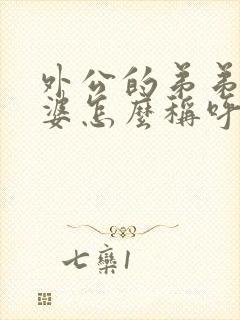 外公的弟弟
婆怎麼稱呼
七欒1